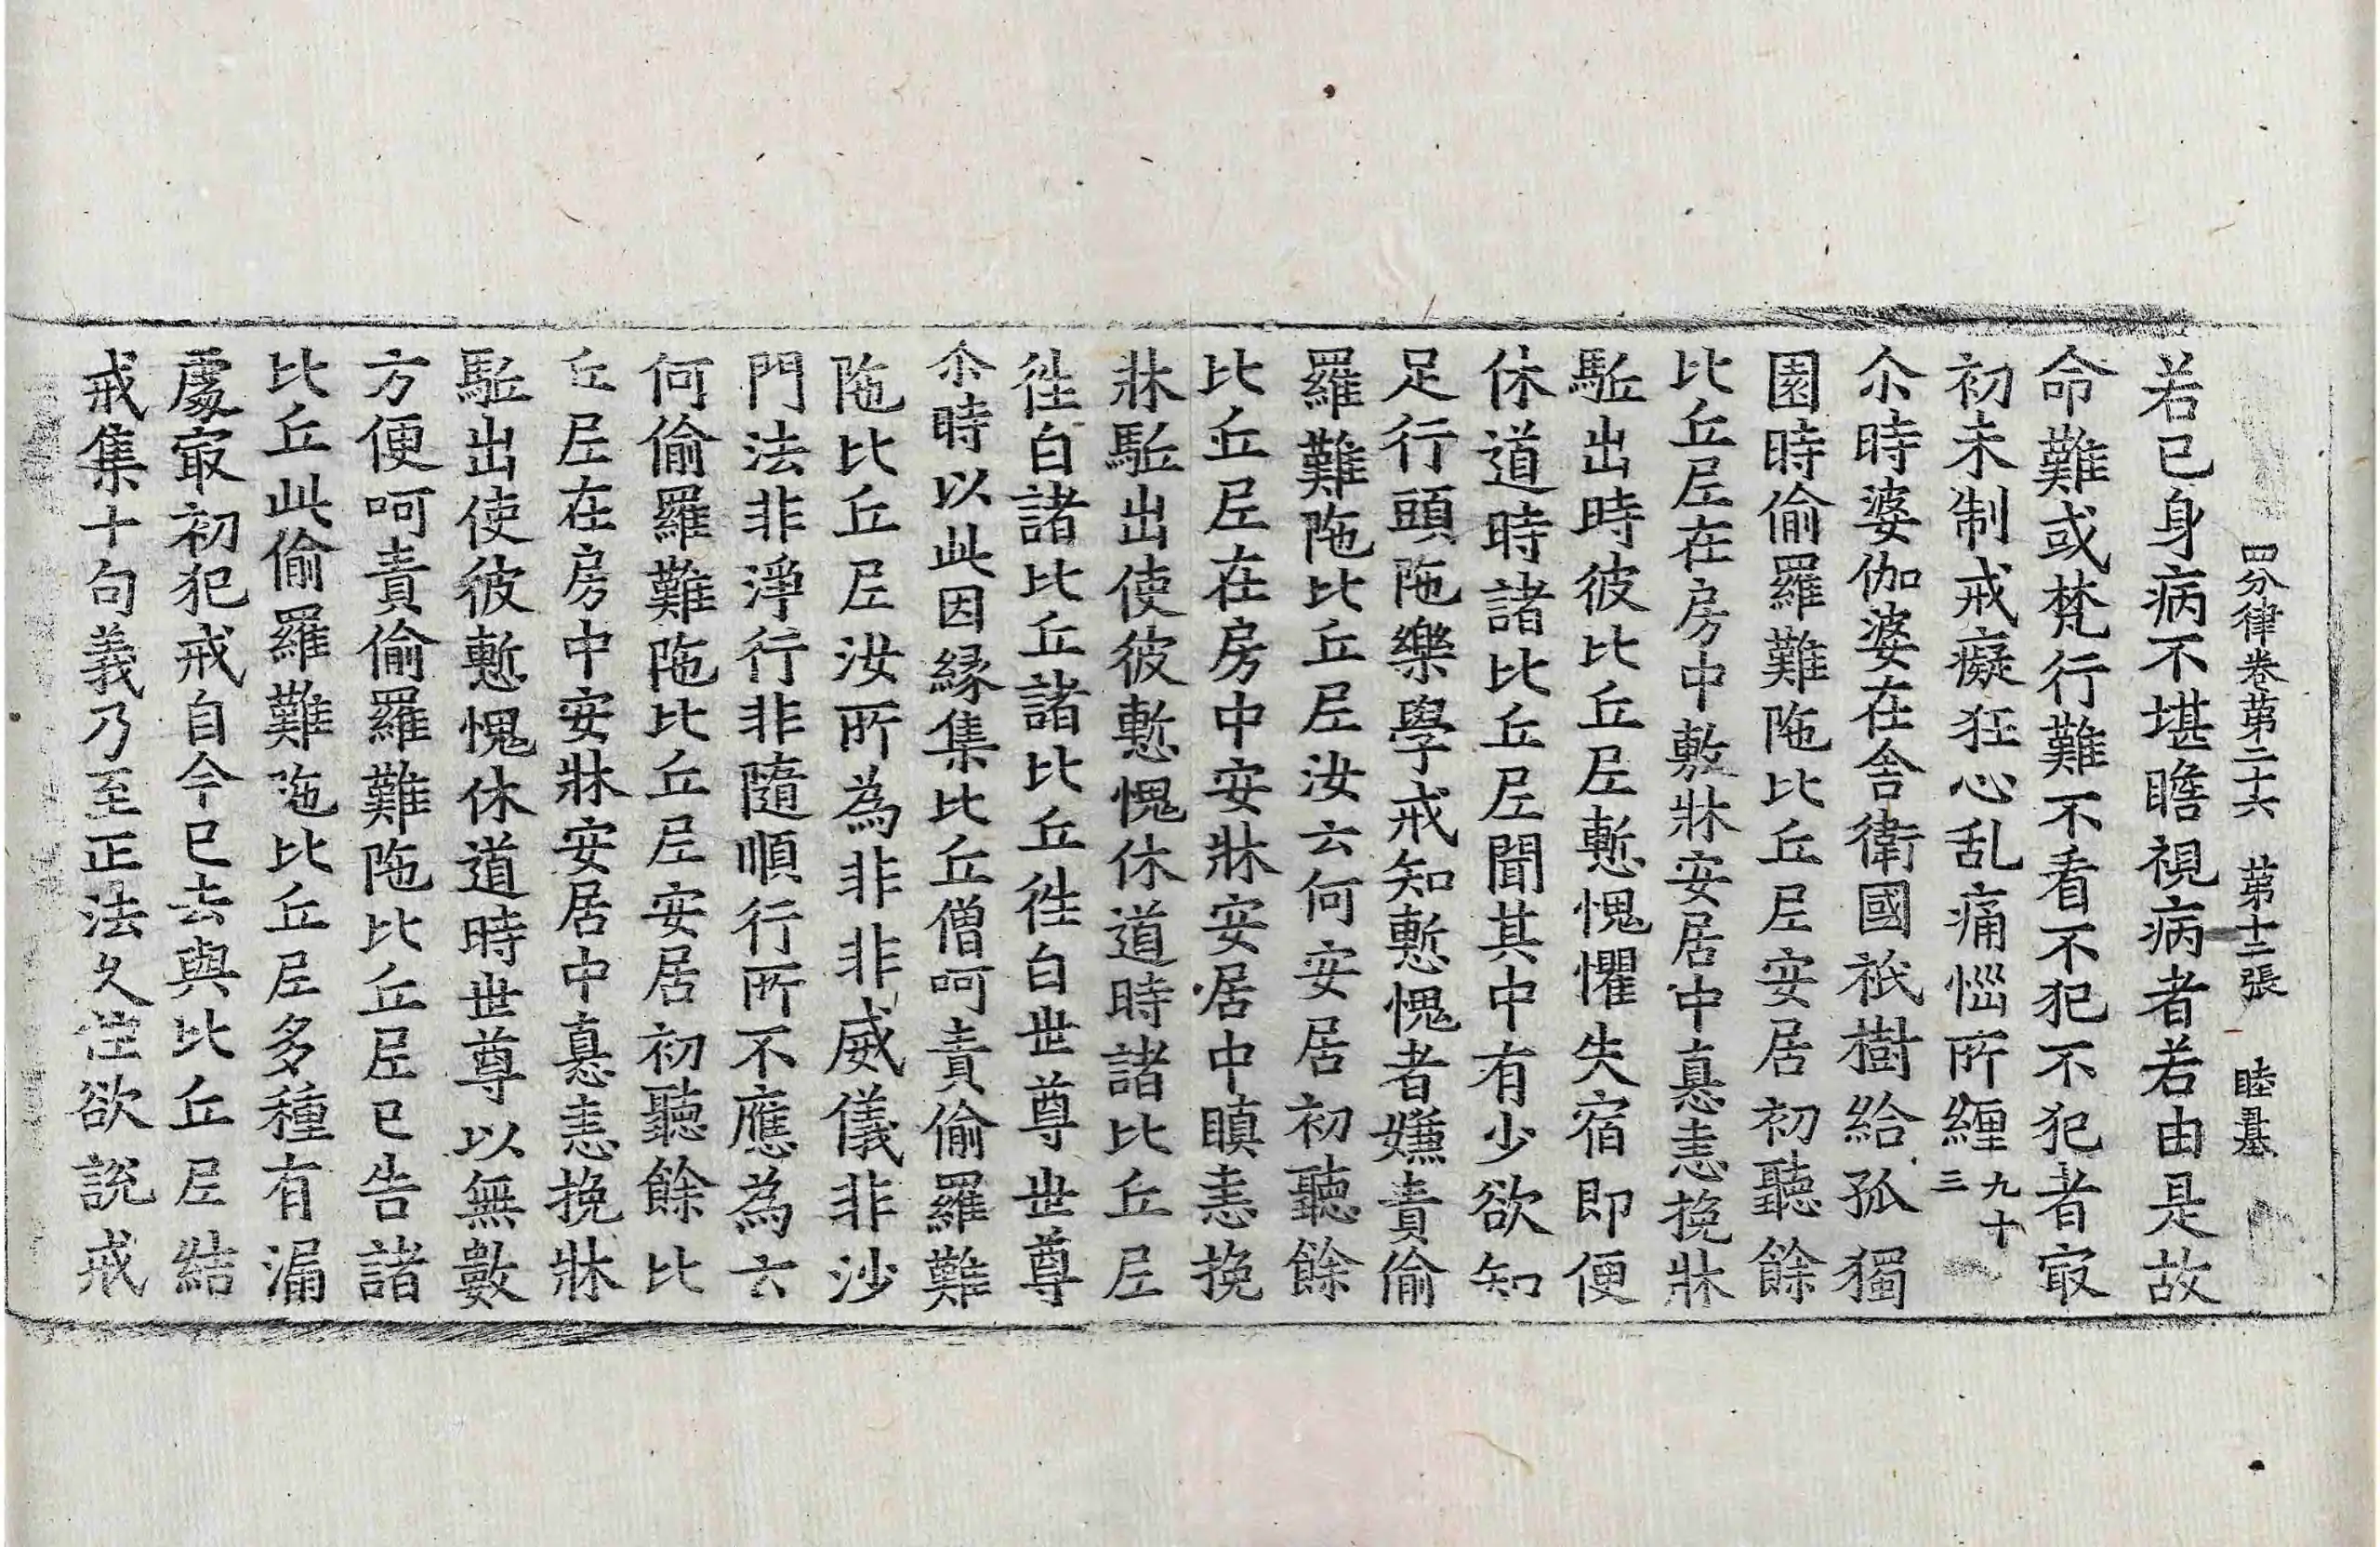 四分律卷第二十六 第十二張 睦
若已身病不堪瞻視病者若由是故
命難或梵行難不看不犯不犯者冣
初未制戒癡狂心乱痛惱所纏九十三
尒時婆伽婆在舍衛國祇樹給孤獨
園時偷羅難陁比丘尼安居初聽餘
比丘尼在房中敷牀安居中恚恚挽牀
駈出時彼比丘尼慙愧懼失宿即便
休道時諸比丘尼聞其中有少欲知
足行頭陁樂學戒知慙愧者嫌責偷
羅難陁比丘尼汝云何安居初聽餘
比丘尼在房中安牀安居中瞋恚挽
牀駈出使彼慙愧休道時諸比丘尼
徃白諸比丘諸比丘徃白世尊世尊
尒時以此因緣集比丘僧呵責偷羅難
陁比丘尼汝所為非非威儀非沙
門法非淨行非隨順行所不應為云
何偷羅難陁比丘尼安居初聽餘比
丘尼在房中安牀安居中恚恚挽牀
駈出使彼慙愧休道時世尊以無數
方便呵責偷羅難陁比丘尼已告諸
比丘此偷羅難陁比丘尼多種有漏
處冣初犯戒自今已去與比丘尼結
戒集十句義乃至正法久住欲說戒